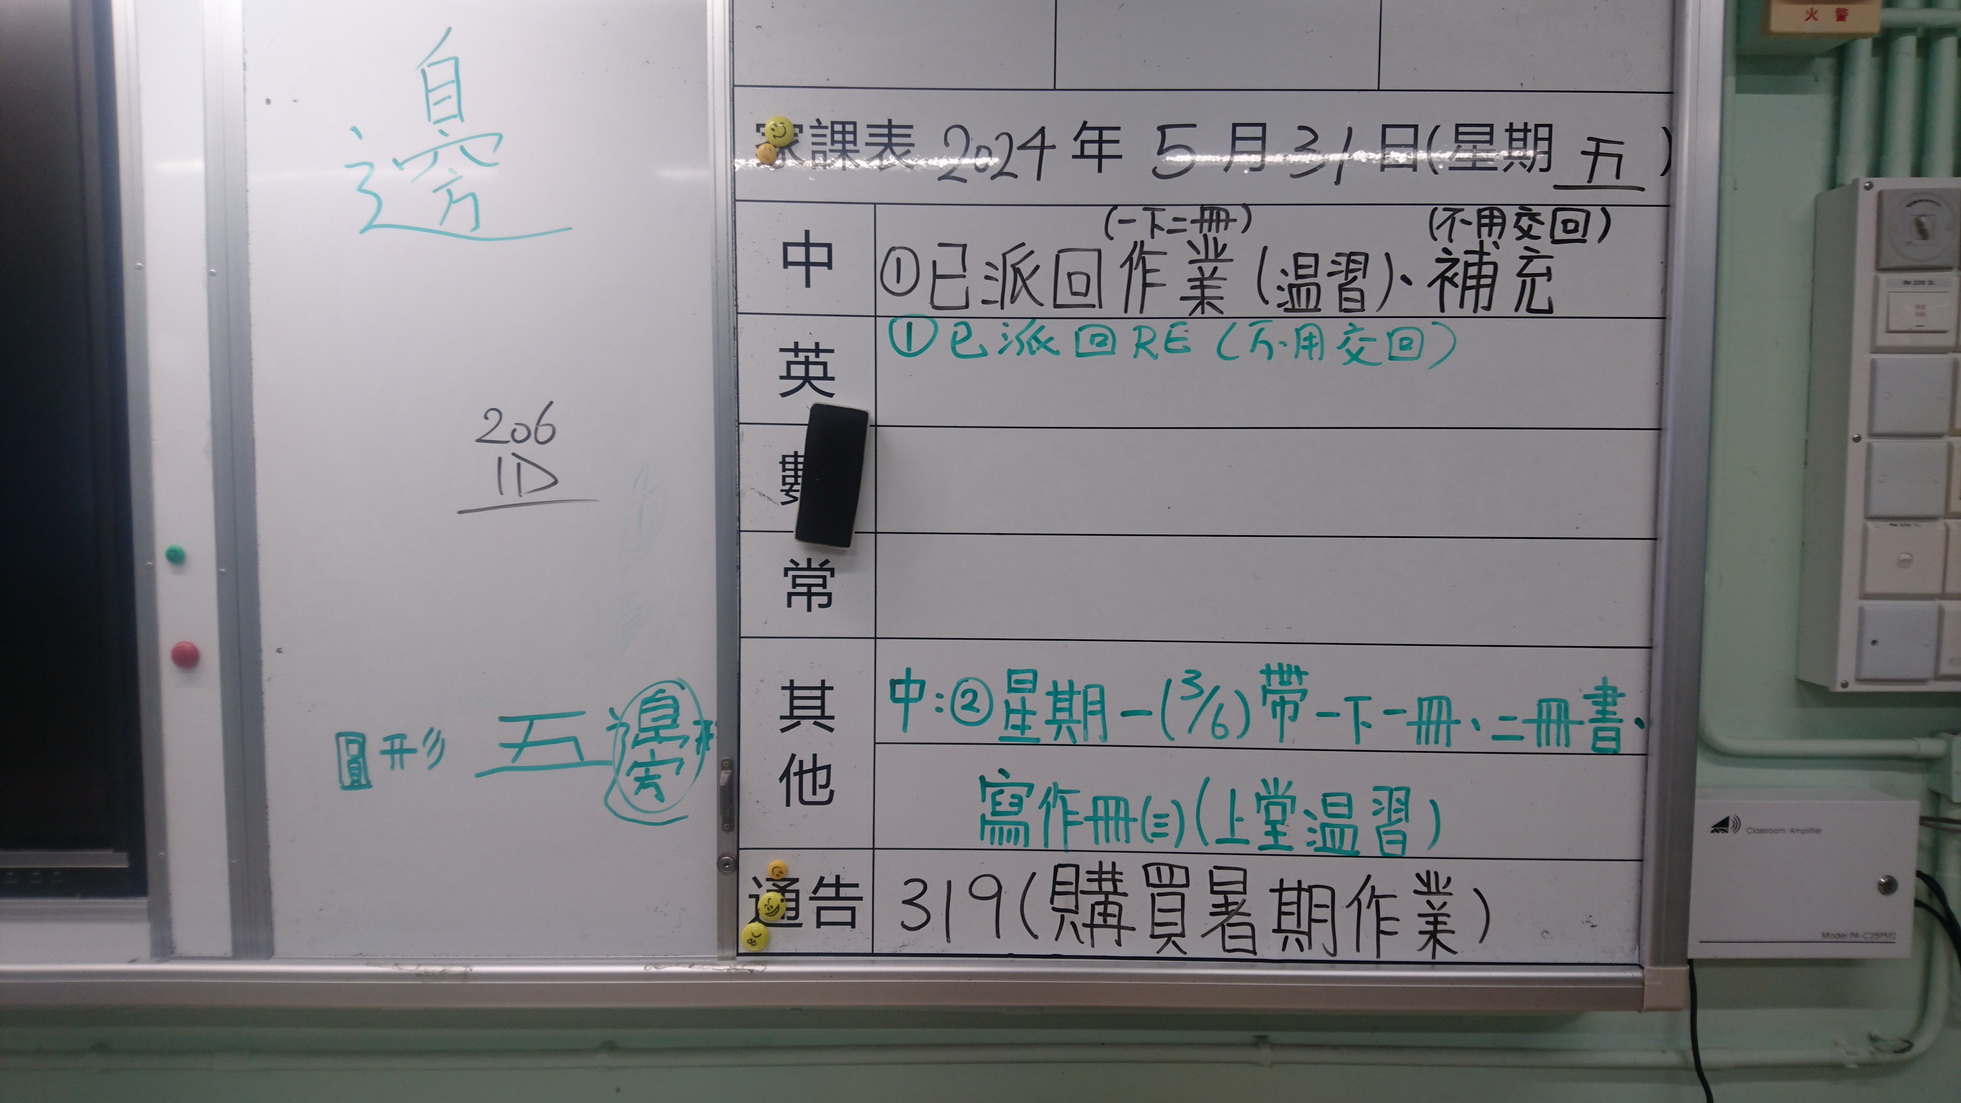 邊
206
1D
圓形 五邊形
家課表 2024年5月31日(星期五)
(一下二冊) (不用交回)
中 ①已派回作業(温習)、補充
英 ①已派回RE(不用交回)
數
常
其他 中:②星期一(3/6)帶一下一冊、二冊書、
寫作冊(三)(上堂温習)
通告 319(購買暑期作業)
火警
Classroom Amplifier